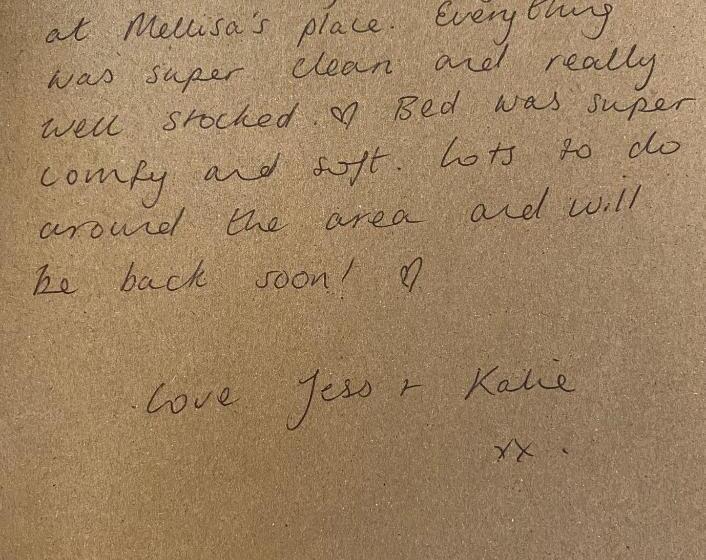 at Mellisa's place. Everything
was super clean and really
well stocked. ♡ Bed was super
comfy and soft. Lots to do
around the area and will
be back soon! ♡
Love Jess + Katie
xx.